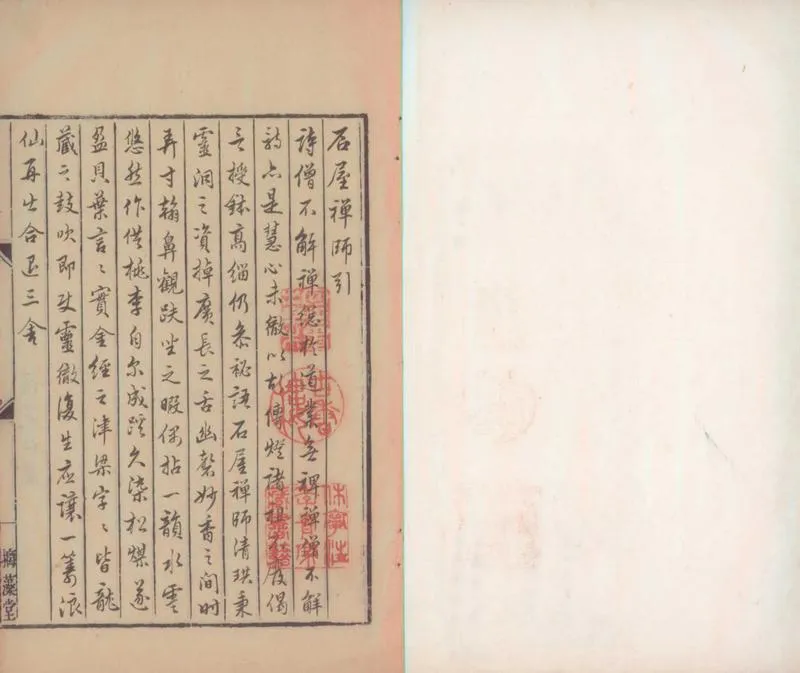 石屋禅師引
詩僧不解禅總於道業無裨禅僧不解
詩亦是慧心未徹以故傳燈諸祖元度偈
言授鉢高緇仍參祕語石屋禅師清珙秉
靈洞之資掉廣長之舌幽磬妙香之間時
弄寸翰鼻觀趺坐之暇偶拈一韻水雲
悠然作供桃李自尔成蹊久染松煤遂
盈貝葉言〻實金經之津梁字〻皆龍
藏之鼓吹即使靈徹復生應讓一籌浪
仙再出合退三舍
藻堂